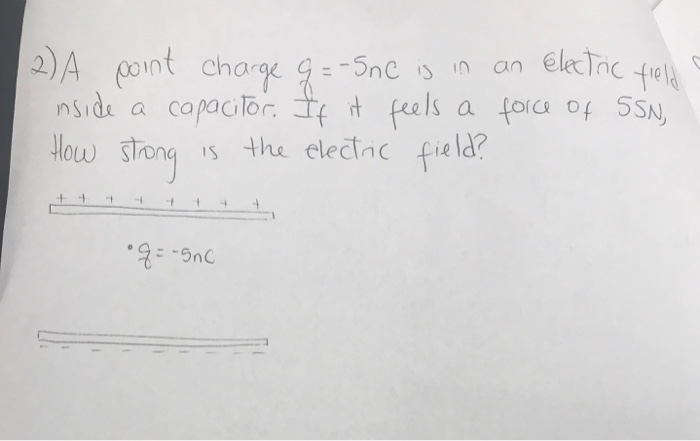 2) A point charge q = -5nC is in an electric field
inside a capacitor. If it feels a force of 55N,
How strong is the electric field?
+ + + + + + + +
q = -5nC
- - - - - - - -